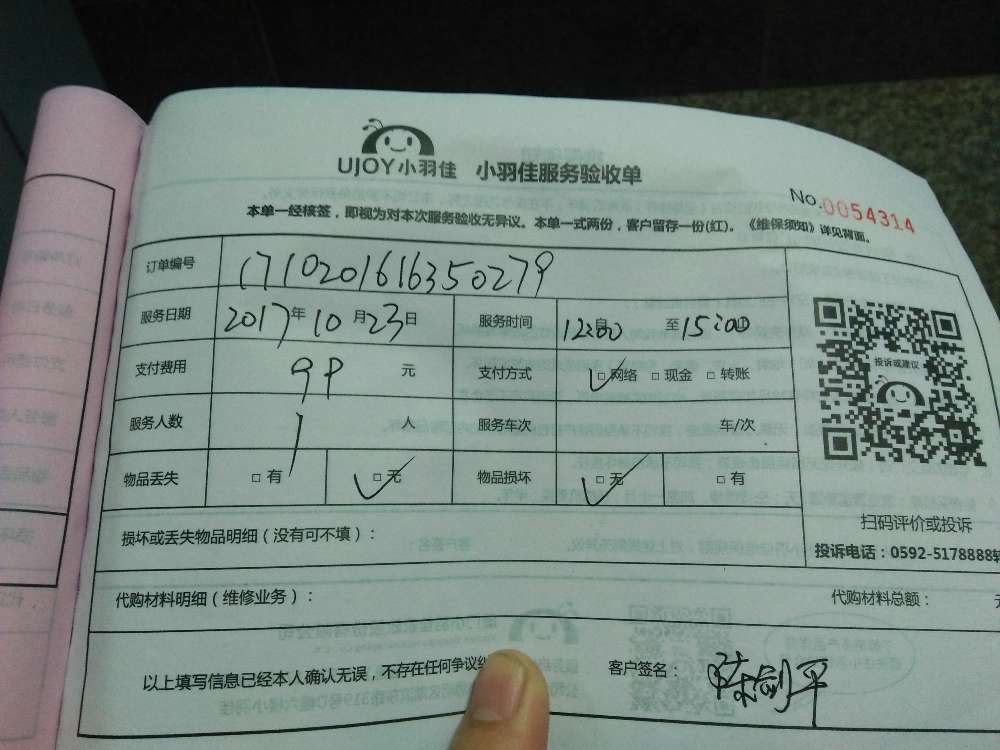 UJOY小羽佳 小羽佳服务验收单
No.0054314
本单一经核签，即视为对本次服务验收无异议。本单一式两份，客户留存一份(红)。《维保须知》详见背面。
订单编号 1710201616350279
服务日期 2017年10月23日 服务时间 12:00 至 15:00
支付费用 99 元 支付方式 □网络 □现金 □转账
服务人数 1 人 服务车次 车/次
物品丢失 □有 □无 物品损坏 □无 □有
投诉或建议
扫码评价或投诉
投诉电话：0592-5178888转
损坏或丢失物品明细（没有可不填）：
代购材料明细（维修业务）： 代购材料总额：
以上填写信息已经本人确认无误，不存在任何争议 客户签名： 陈剑平